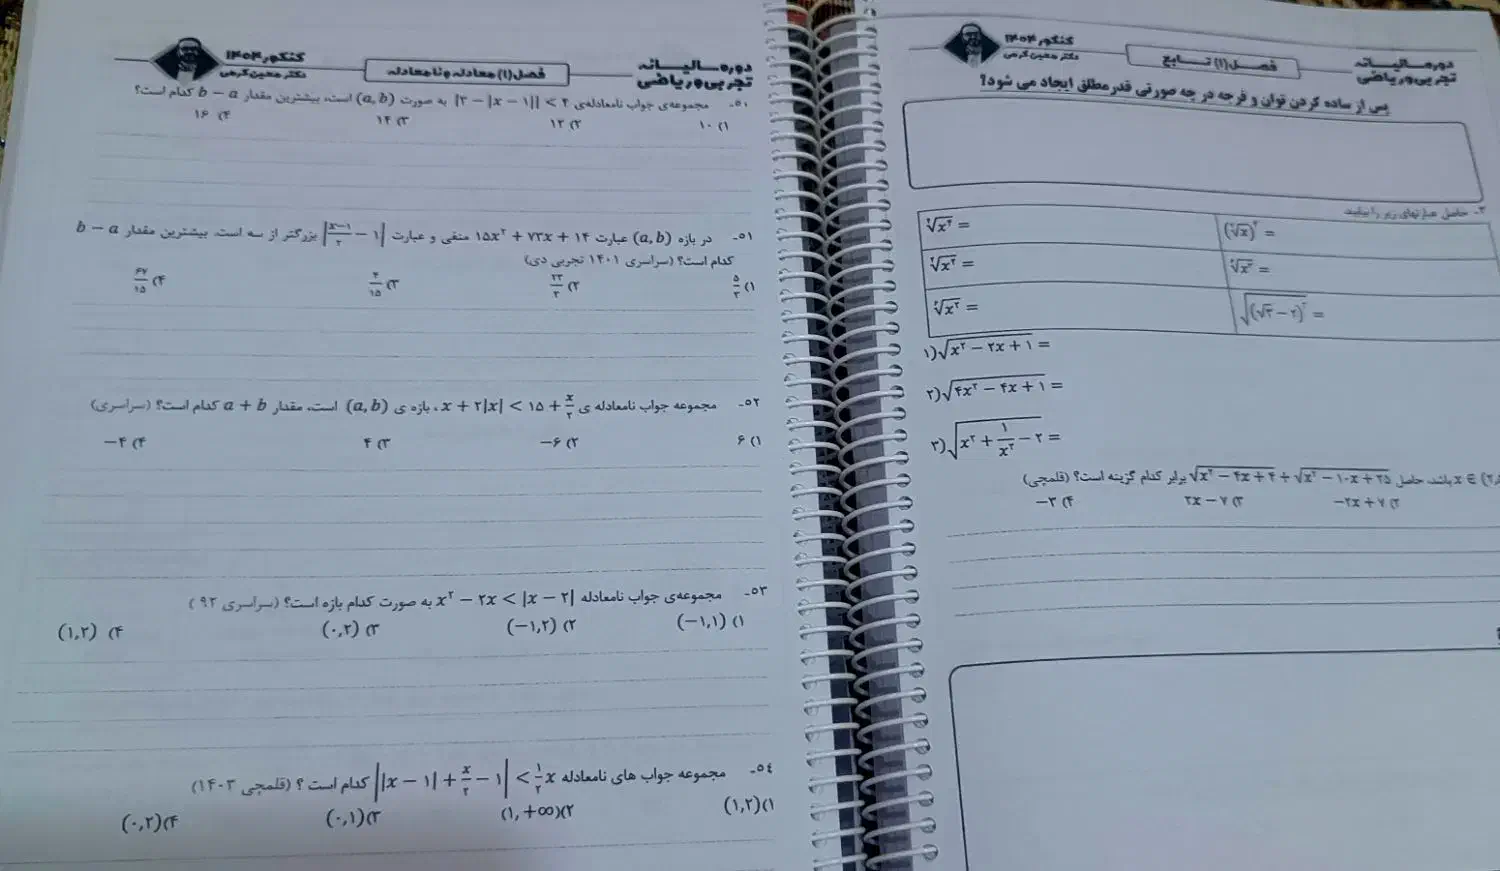 دوره سالیانه
تجربی و ریاضی
فصل(۱) معادله و نامعادله
کنکور ۱۴۰۴
دکتر معین کرمی
۵۰- مجموعه‌ی جواب نامعادله‌ی |۳ − |x − ۱|| < ۴ به صورت (a, b) است، بیشترین مقدار b − a کدام است؟
۱) ۱۰ ۲) ۱۲ ۳) ۱۴ ۴) ۱۶
۵۱- در بازه (a, b) عبارت ۱۵x² + ۷۳x + ۱۴ منفی و عبارت |(x−۱)/۲ − ۱| بزرگتر از سه است. بیشترین مقدار b − a
کدام است؟ (سراسری ۱۴۰۱ تجربی دی)
۱) ۵/۳ ۲) ۲۳/۳ ۳) ۴/۱۵ ۴) ۶۷/۱۵
۵۲- مجموعه جواب نامعادله ی x + ۲|x| < ۱۵ + x/۲ ، بازه ی (a, b) است، مقدار a + b کدام است؟ (سراسری)
۱) ۶ ۲) −۶ ۳) ۴ ۴) −۴
۵۳- مجموعه‌ی جواب نامعادله x² − ۲x < |x − ۲| به صورت کدام بازه است؟ (سراسری ۹۲)
۱) (−۱,۱) ۲) (−۱,۲) ۳) (۰,۲) ۴) (۱,۲)
۵۴- مجموعه جواب های نامعادله ||x − ۱| + x/۲ − ۱| < ۱/۲ x کدام است ؟ (قلمچی ۱۴۰۳)
۱) (۱,۲) ۲) (۱, +∞) ۳) (۰,۱) ۴) (۰,۲)
دوره سالیانه
تجربی و ریاضی
فصل(۱) تابع
کنکور ۱۴۰۴
دکتر معین کرمی
پس از ساده کردن توان و فرجه در چه صورتی قدر مطلق ایجاد می شود؟
۳- حاصل عبارتهای زیر را بیابید.
۱) √(x² − ۲x + ۱) =
۲) √(۴x² − ۴x + ۱) =
۳) √(x² + ۱/x² − ۲) =
باشد، حاصل √(x² − ۴x + ۴) + √(x² − ۱۰x + ۲۵) برابر کدام گزینه است؟ (قلمچی)
۲) −۲x + ۷ ۳) ۲x − ۷ ۴) −۳